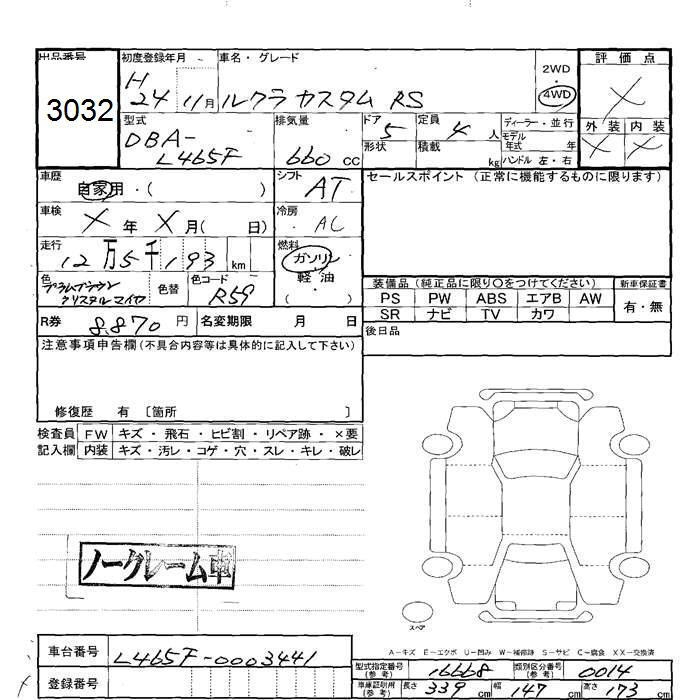 出品番号
3032
初度登録年月
H
24 11月
車名・グレード
ルクラ カスタム RS
2WD
4WD
評価点
×
外装 内装
× ×
型式
DBA-
L465F
排気量
660 cc
ドア
5
形状
定員
4 人
積載
kg
ディーラー・並行
モデル
年式 年
ハンドル 左・右
車歴
自家用・( )
シフト
AT
車検
× 年 × 月( 日)
冷房
AC
走行
12万5千193 km
燃料
ガソリン
軽油
( )
色
プラムブラウン
クリスタルマイカ
色替
色コード
R59
R券
8,870 円
名変期限 月 日
セールスポイント (正常に機能するものに限ります)
装備品 (純正品に限り〇をつけてください)
新車保証書
PS PW ABS エアB AW
SR ナビ TV カワ
有・無
後日品
注意事項申告欄(不具合内容等は具体的に記入して下さい)
修復歴 有 〔箇所 〕
検査員
記入欄
FW キズ・飛石・ヒビ割・リペア跡・×要
内装 キズ・汚レ・コゲ・穴・スレ・キレ・破レ
ノークレーム車
スペア
A-キズ E-エクボ U-凹み W-補修跡 S-サビ C-腐食 XX-交換済
車台番号
L465F-0003441
登録番号
型式指定番号
(参考)
16668
類別区分番号
(参考)
0014
車庫証明用
(参考)
長さ 339 cm 幅 147 cm 高さ 173 cm